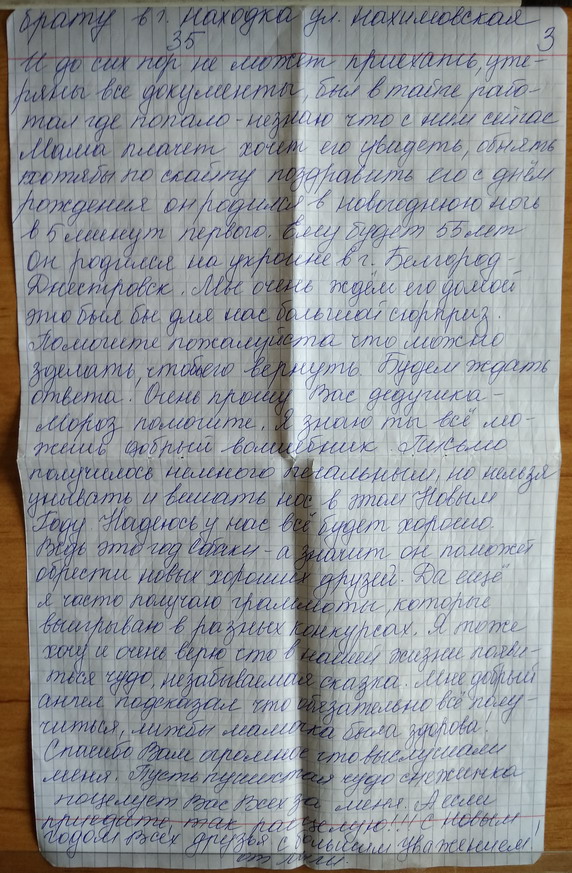 брату в г. Находка ул. Нахимовская
35
3
И до сих пор не может приехать, уте-
ряны все документы, был в тайге рабо-
тал где попало - незнаю что с ним сейчас
Мама плачет хочет его увидеть, обнять
хотябы по скайпу поздравить его с днём
рождения он родился в новогоднюю ночь
в 5 минут первого. Ему будет 55 лет
Он родился на украине в г. Белгород-
Днестровск. Мы очень ждём его домой
это был бы для нас большой сюрприз.
Помогите пожалуйста что можно
зделать, чтобы его вернуть. Будем ждать
ответа! Очень прошу Вас дедушка-
мороз помогите. Я знаю ты всё мо-
жешь добрый волшебник. Письмо
получилось немного печальным, но нельзя
унывать и вешать нос в этом Новым
Году. Надеюсь у нас всё будет хорошо.
Ведь это год Собаки - а значит он поможет
обрести новых хороших друзей. Да ещё
я часто получаю граммоты, которые
выигрываю в разных конкурсах. Я тоже
хочу и очень верю что в нашей жизни появи-
тся чудо, незабываемая сказка. Мне добрый
ангел подсказал что обязательно всё полу-
читься, лижбы мамочка была здорова!
Спасибо Вам огромное что выслушали
меня. Пусть пушистая чудо снежинка
поцелует Вас Всех за меня. А если
приедите, так расцелую!!! С новым
годом Всех друзья с большим уважением!
от